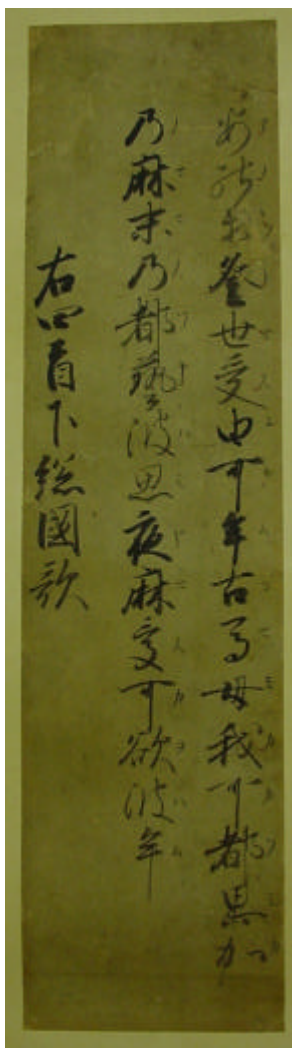 安能於登世受由可牟古馬母我可都思加
乃麻末乃都藝波思夜麻受可欲波牟
右四首下総國歌